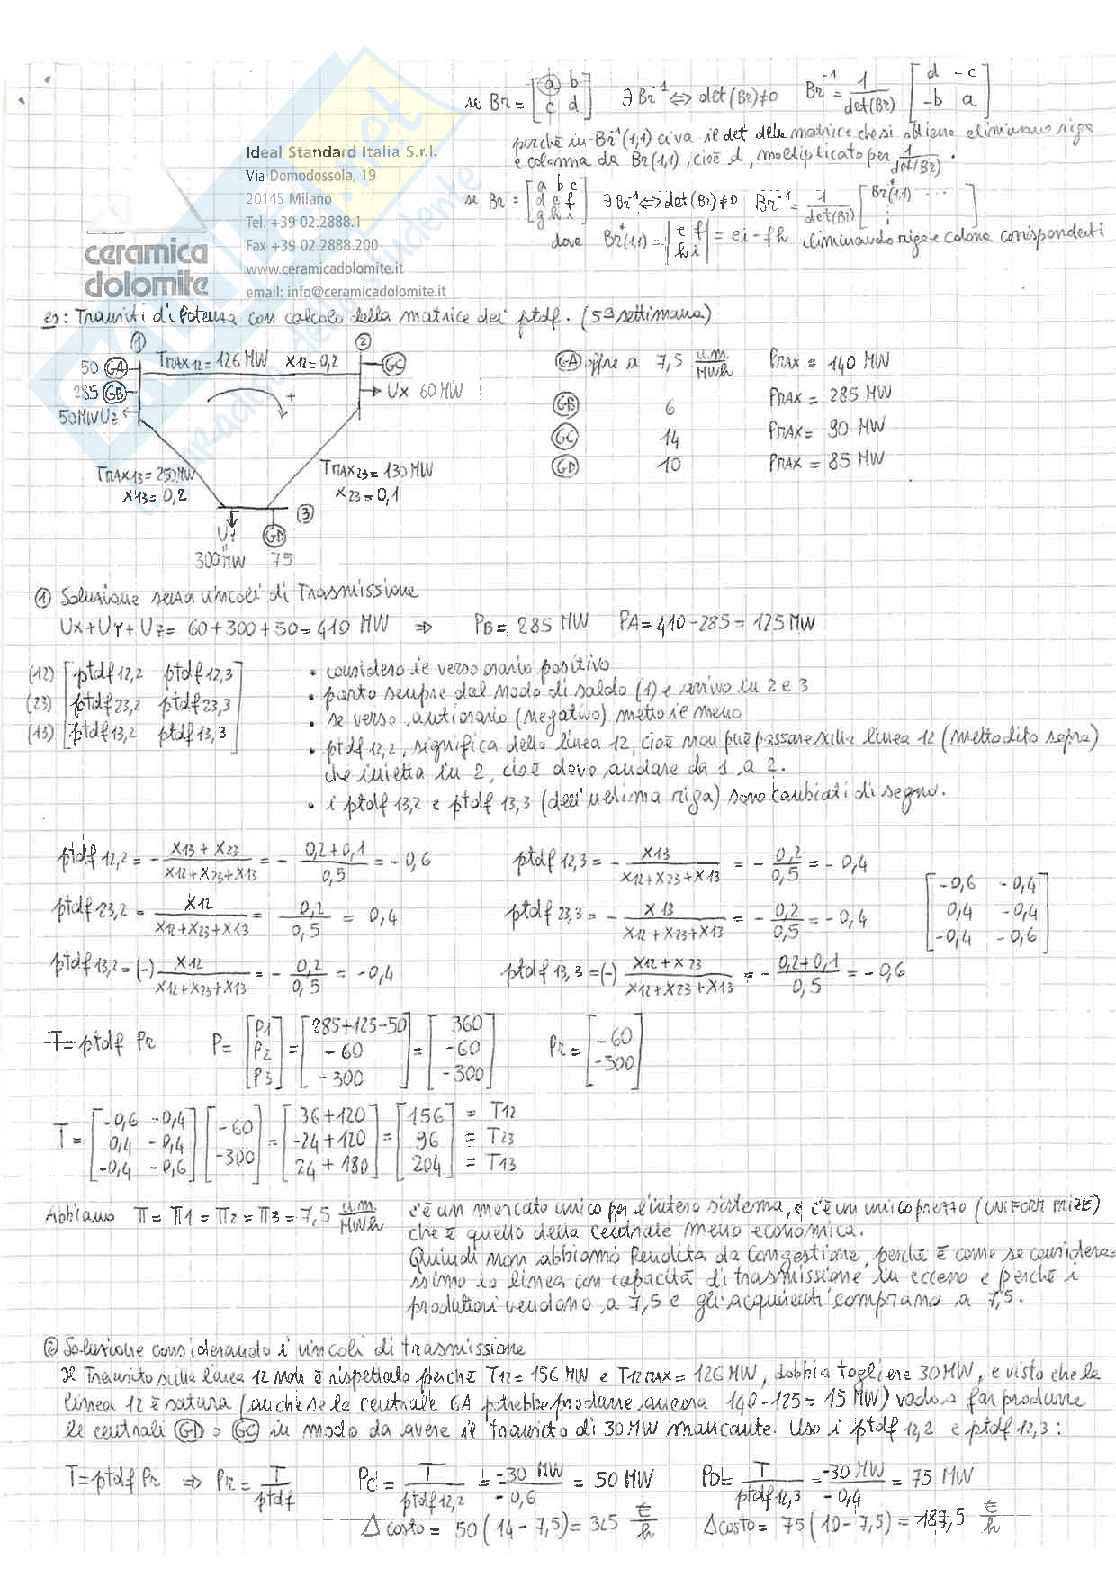 se Br = [a b; c d] ∃ Br⁻¹ ⇔ det(Br)≠0 Br⁻¹ = 1/det(Br) [d -c; -b a]
perché in Br⁻¹(1,1) ci va il det della matrice che si ottiene eliminando riga
e colonna da Br(1,1), cioè d, moltiplicato per 1/det(Br).
se Br = [a b c; d e f; g h i] ∃ Br⁻¹ ⇔ det(Br)≠0 Br⁻¹ = 1/det(Br) [Br*(1,1) ...; ⋮ ]
dove Br*(1,1) = |e f; h i| = ei - fh eliminando riga e colonna corrispondenti
Ideal Standard Italia S.r.l.
Via Domodossola, 19
20145 Milano
Tel. +39 02.2888.1
Fax +39 02.2888.200
www.ceramicadolomite.it
email: info@ceramicadolomite.it
ceramica
dolomite
es: Transiti di Potenza con calcolo della matrice dei ptdf. (5ª settimana)
① TMAX12 = 126 MW x12=0,2 ②
50 GA
285 GB
50MW Uz
GC
Ux 60 MW
+
TMAX13 = 250MW
x13 = 0,2
TMAX23 = 130 MW
x23 = 0,1
③
Uy
300MW
GD
75
GA offre a 7,5 u.m./MWh PMAX = 140 MW
GB 6 PMAX = 285 MW
GC 14 PMAX = 90 MW
GD 10 PMAX = 85 MW
① Soluzione senza vincoli di Trasmissione
Ux+Uy+Uz = 60+300+50 = 410 MW ⇒ PB = 285 MW PA = 410-285 = 125 MW
(12) [ptdf12,2 ptdf12,3]
(23) [ptdf23,2 ptdf23,3]
(13) [ptdf13,2 ptdf13,3]
• considero il verso orario positivo
• parto sempre dal nodo di saldo (1) e arrivo in 2 e 3
• se verso antiorario (negativo) metto il meno
• ptdf12,2, significa della linea 12, cioè non può passare sulla linea 12 (metto dito sopra)
che inietta in 2, cioè devo andare da 1 a 2.
• i ptdf13,2 e ptdf13,3 (dell'ultima riga) sono cambiati di segno.
ptdf12,2 = - (x13+x23)/(x12+x23+x13) = - (0,2+0,1)/0,5 = -0,6 ptdf12,3 = - x13/(x12+x23+x13) = - 0,2/0,5 = -0,4
ptdf23,2 = x12/(x12+x23+x13) = 0,2/0,5 = 0,4 ptdf23,3 = - x13/(x12+x23+x13) = - 0,2/0,5 = -0,4
ptdf13,2 = (-) x12/(x12+x23+x13) = - 0,2/0,5 = -0,4 ptdf13,3 = (-) (x12+x23)/(x12+x23+x13) = - (0,2+0,1)/0,5 = -0,6
[-0,6 -0,4; 0,4 -0,4; -0,4 -0,6]
T = ptdf Pr P = [P1; P2; P3] = [285+125-50; -60; -300] = [360; -60; -300] Pr = [-60; -300]
T = [-0,6 -0,4; 0,4 -0,4; -0,4 -0,6] [-60; -300] = [36+120; -24+120; 24+180] = [156; 96; 204] = T12 = T23 = T13
Abbiamo π = π1 = π2 = π3 = 7,5 u.m./MWh c'è un mercato unico per l'intero sistema, e c'è un unico prezzo (UNIFORM PRICE)
che è quello della centrale meno economica.
Quindi non abbiamo Rendita da Congestione, perché è come se considera=
ssimo la linea con capacità di trasmissione in eccesso e perché i
produttori vendono a 7,5 e gli acquirenti comprano a 7,5.
② Soluzione considerando i vincoli di trasmissione
Il Transito sulla linea 12 non è rispettato perché T12 = 156 MW e T12MAX = 126 MW, dobbia togliere 30MW, e visto che la
linea 12 è satura (anche se la centrale GA potrebbe produrre ancora 140-125 = 15 MW) vado a far produrre
le centrali GD o GC in modo da avere il transito di 30MW mancante. Uso i ptdf12,2 e ptdf12,3:
T = ptdf Pr ⇒ Pr = T/ptdf PC = T/ptdf12,2 = -30 MW/-0,6 = 50 MW PD = T/ptdf12,3 = -30 MW/-0,4 = 75 MW
Δcosto = 50(14-7,5) = 325 €/h Δcosto = 75(10-7,5) = 187,5 €/h